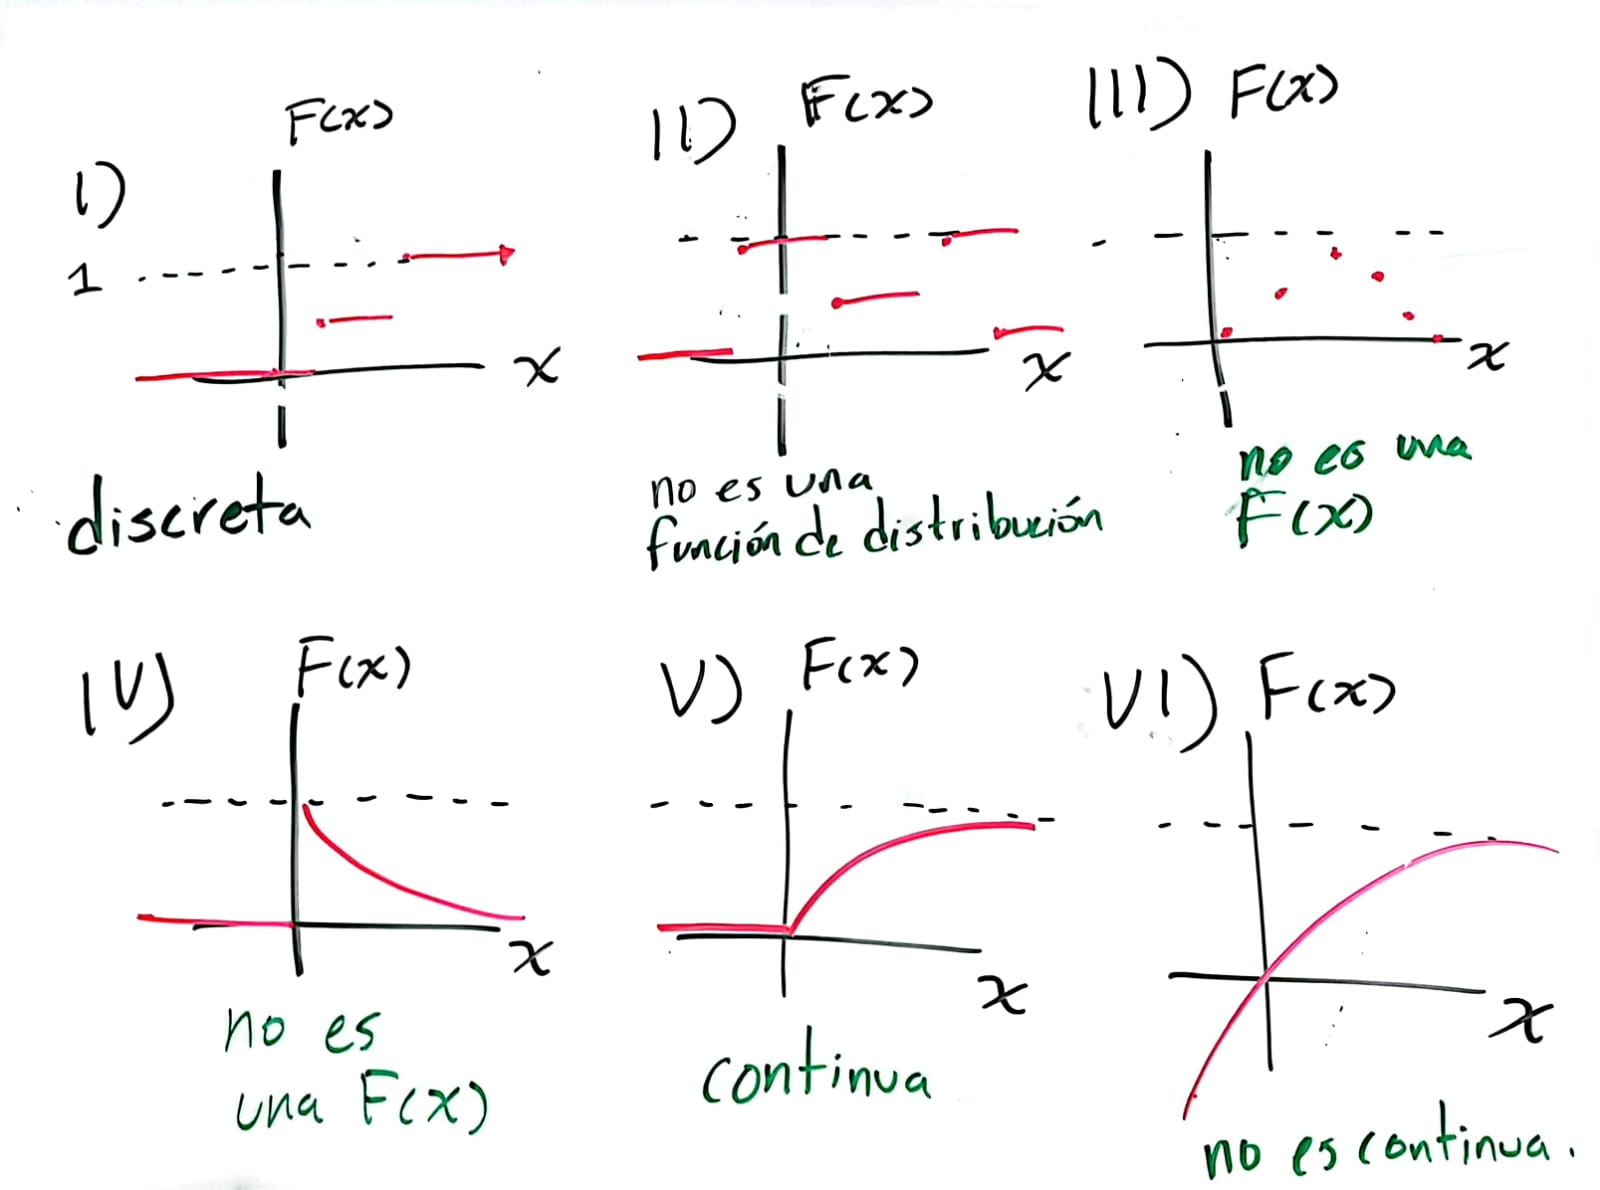 I) F(x)
1
x
discreta
II) F(x)
x
no es una
función de distribución
III) F(x)
x
no es una
F(x)
IV) F(x)
x
no es
una F(x)
V) F(x)
x
continua
VI) F(x)
x
no es continua.